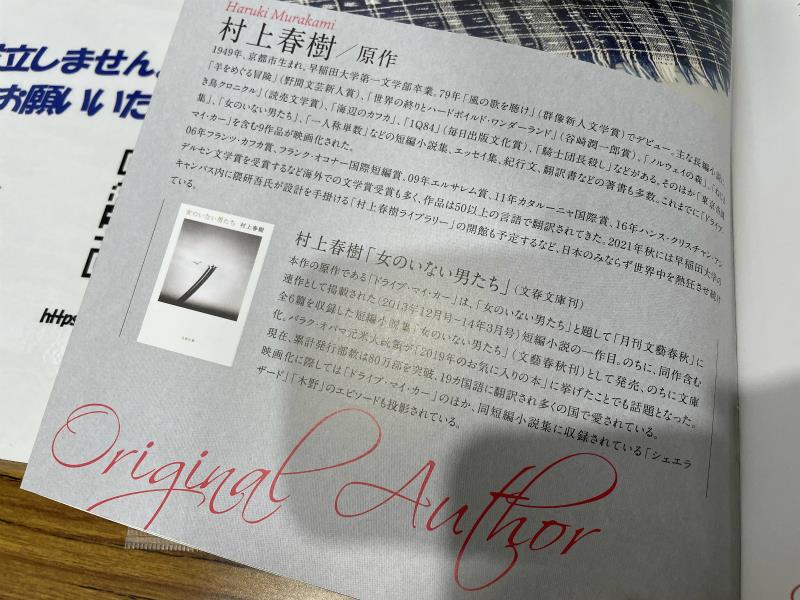 立しません。
お願いいた
https
Haruki Murakami
村上春樹/原作
1949年、京都市生まれ。早稲田大学第一文学部卒業。79年「風の歌を聴け」(群像新人文学賞)でデビュー。主な長編小説に、
「羊をめぐる冒険」(野間文芸新人賞)、「世界の終りとハードボイルド・ワンダーランド」(谷崎潤一郎賞)、「ノルウェイの森」、「ねじま
き鳥クロニクル」(読売文学賞)、「海辺のカフカ」、「1Q84」(毎日出版文化賞)、「騎士団長殺し」などがある。そのほか「東京奇譚
集」、「女のいない男たち」、「一人称単数」などの短編小説集、エッセイ集、紀行文、翻訳書などの著書も多数。これまでに「ドライブ・
マイ・カー」を含む9作品が映画化された。
06年フランツ・カフカ賞、フランク・オコナー国際短編賞、09年エルサレム賞、11年カタルーニャ国際賞、16年ハンス・クリスチャン・アン
デルセン文学賞を受賞するなど海外での文学賞受賞も多く、作品は50以上の言語で翻訳されてきた。2021年秋には早稲田大学の
キャンパス内に隈研吾氏が設計を手掛ける「村上春樹ライブラリー」の開館も予定するなど、日本のみならず世界中を熱狂させ続け
ている。
女のいない男たち 村上春樹
村上春樹「女のいない男たち」(文春文庫刊)
本作の原作である「ドライブ・マイ・カー」は、「女のいない男たち」と題して「月刊文藝春秋」に
連作として掲載された(2013年12月号−14年3月号)短編小説の一作目。のちに、同作含む
全6篇を収録した短編小説集「女のいない男たち」(文藝春秋刊)として発売、のちに文庫
化。バラク・オバマ元米大統領が「2019年のお気に入りの本」に挙げたことでも話題となった。
現在、累計発行部数は80万部を突破、19カ国語に翻訳され多くの国で愛されている。
映画化に際しては「ドライブ・マイ・カー」のほか、同短編小説集に収録されている「シェエラ
ザード」「木野」のエピソードも投影されている。
Original Author